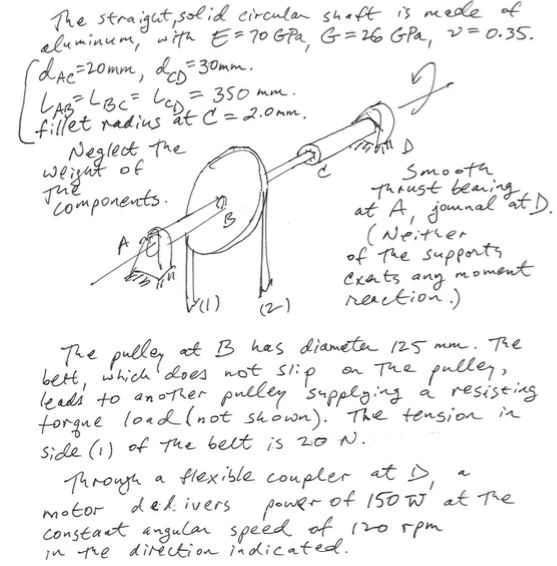 The straight, solid circular shaft is made of
aluminum, with E = 70 GPa, G = 26 GPa, ν = 0.35.
d_AC = 20mm, d_CD = 30mm.
L_AB = L_BC = L_CD = 350 mm.
fillet radius at C = 2.0mm.
Neglect the
weight of
the
components.
A
B
C
D
(1)
(2)
Smooth
thrust bearing
at A, journal at D.
(Neither
of the supports
exerts any moment
reaction.)
The pulley at B has diameter 125 mm. The
belt, which does not slip on the pulley,
leads to another pulley supplying a resisting
torque load (not shown). The tension in
side (1) of the belt is 20 N.
Through a flexible coupler at D, a
motor delivers power of 150 W at the
constant angular speed of 120 rpm
in the direction indicated.